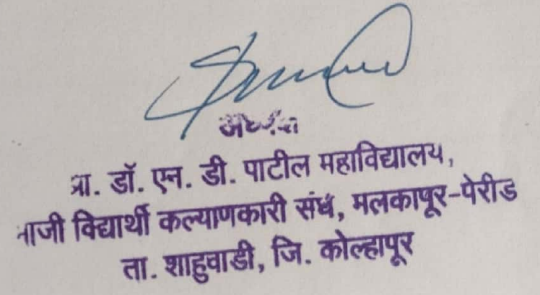 अध्यक्ष
प्रा. डॉ. एन. डी. पाटील महाविद्यालय,
माजी विद्यार्थी कल्याणकारी संघ, मलकापूर-पेरीड
ता. शाहुवाडी, जि. कोल्हापूर